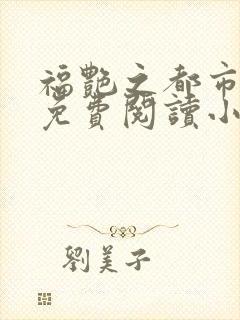 福艷之都市
免費閱讀小
劉美子